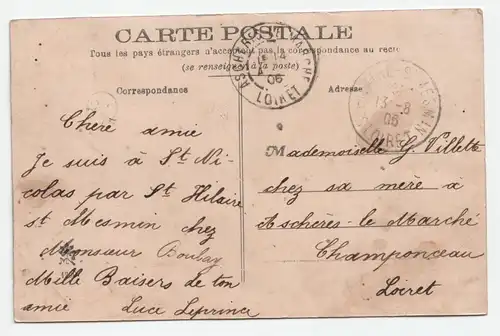 CARTE POSTALE
Tous les pays étrangers n'acceptent pas la correspondance au recto
(se renseigner à la poste)
Correspondance
Adresse
ASCHÈRES-LE-MARCHÉ
14
06
LOIRET
13 -8
06
LOIRET
Chère amie
Je suis à St Ni
colas par St Hilaire
st Mesmin chez
Monsieur Boubay
Mille Baisers de ton
amie Luce Leprince
Mademoiselle G. Villette
chez sa mère à
Aschères-le Marché
Champonceau
Loiret